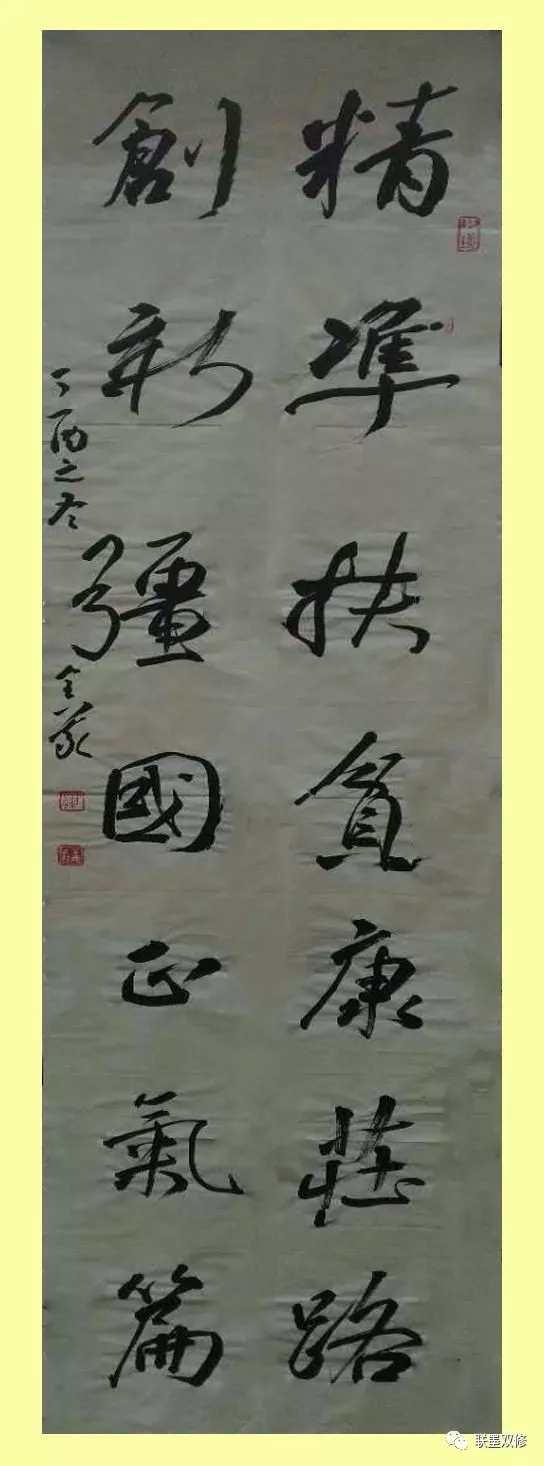 精準扶貧康莊路
創新彊國正氣篇
丁酉之冬 全義
联墨双修